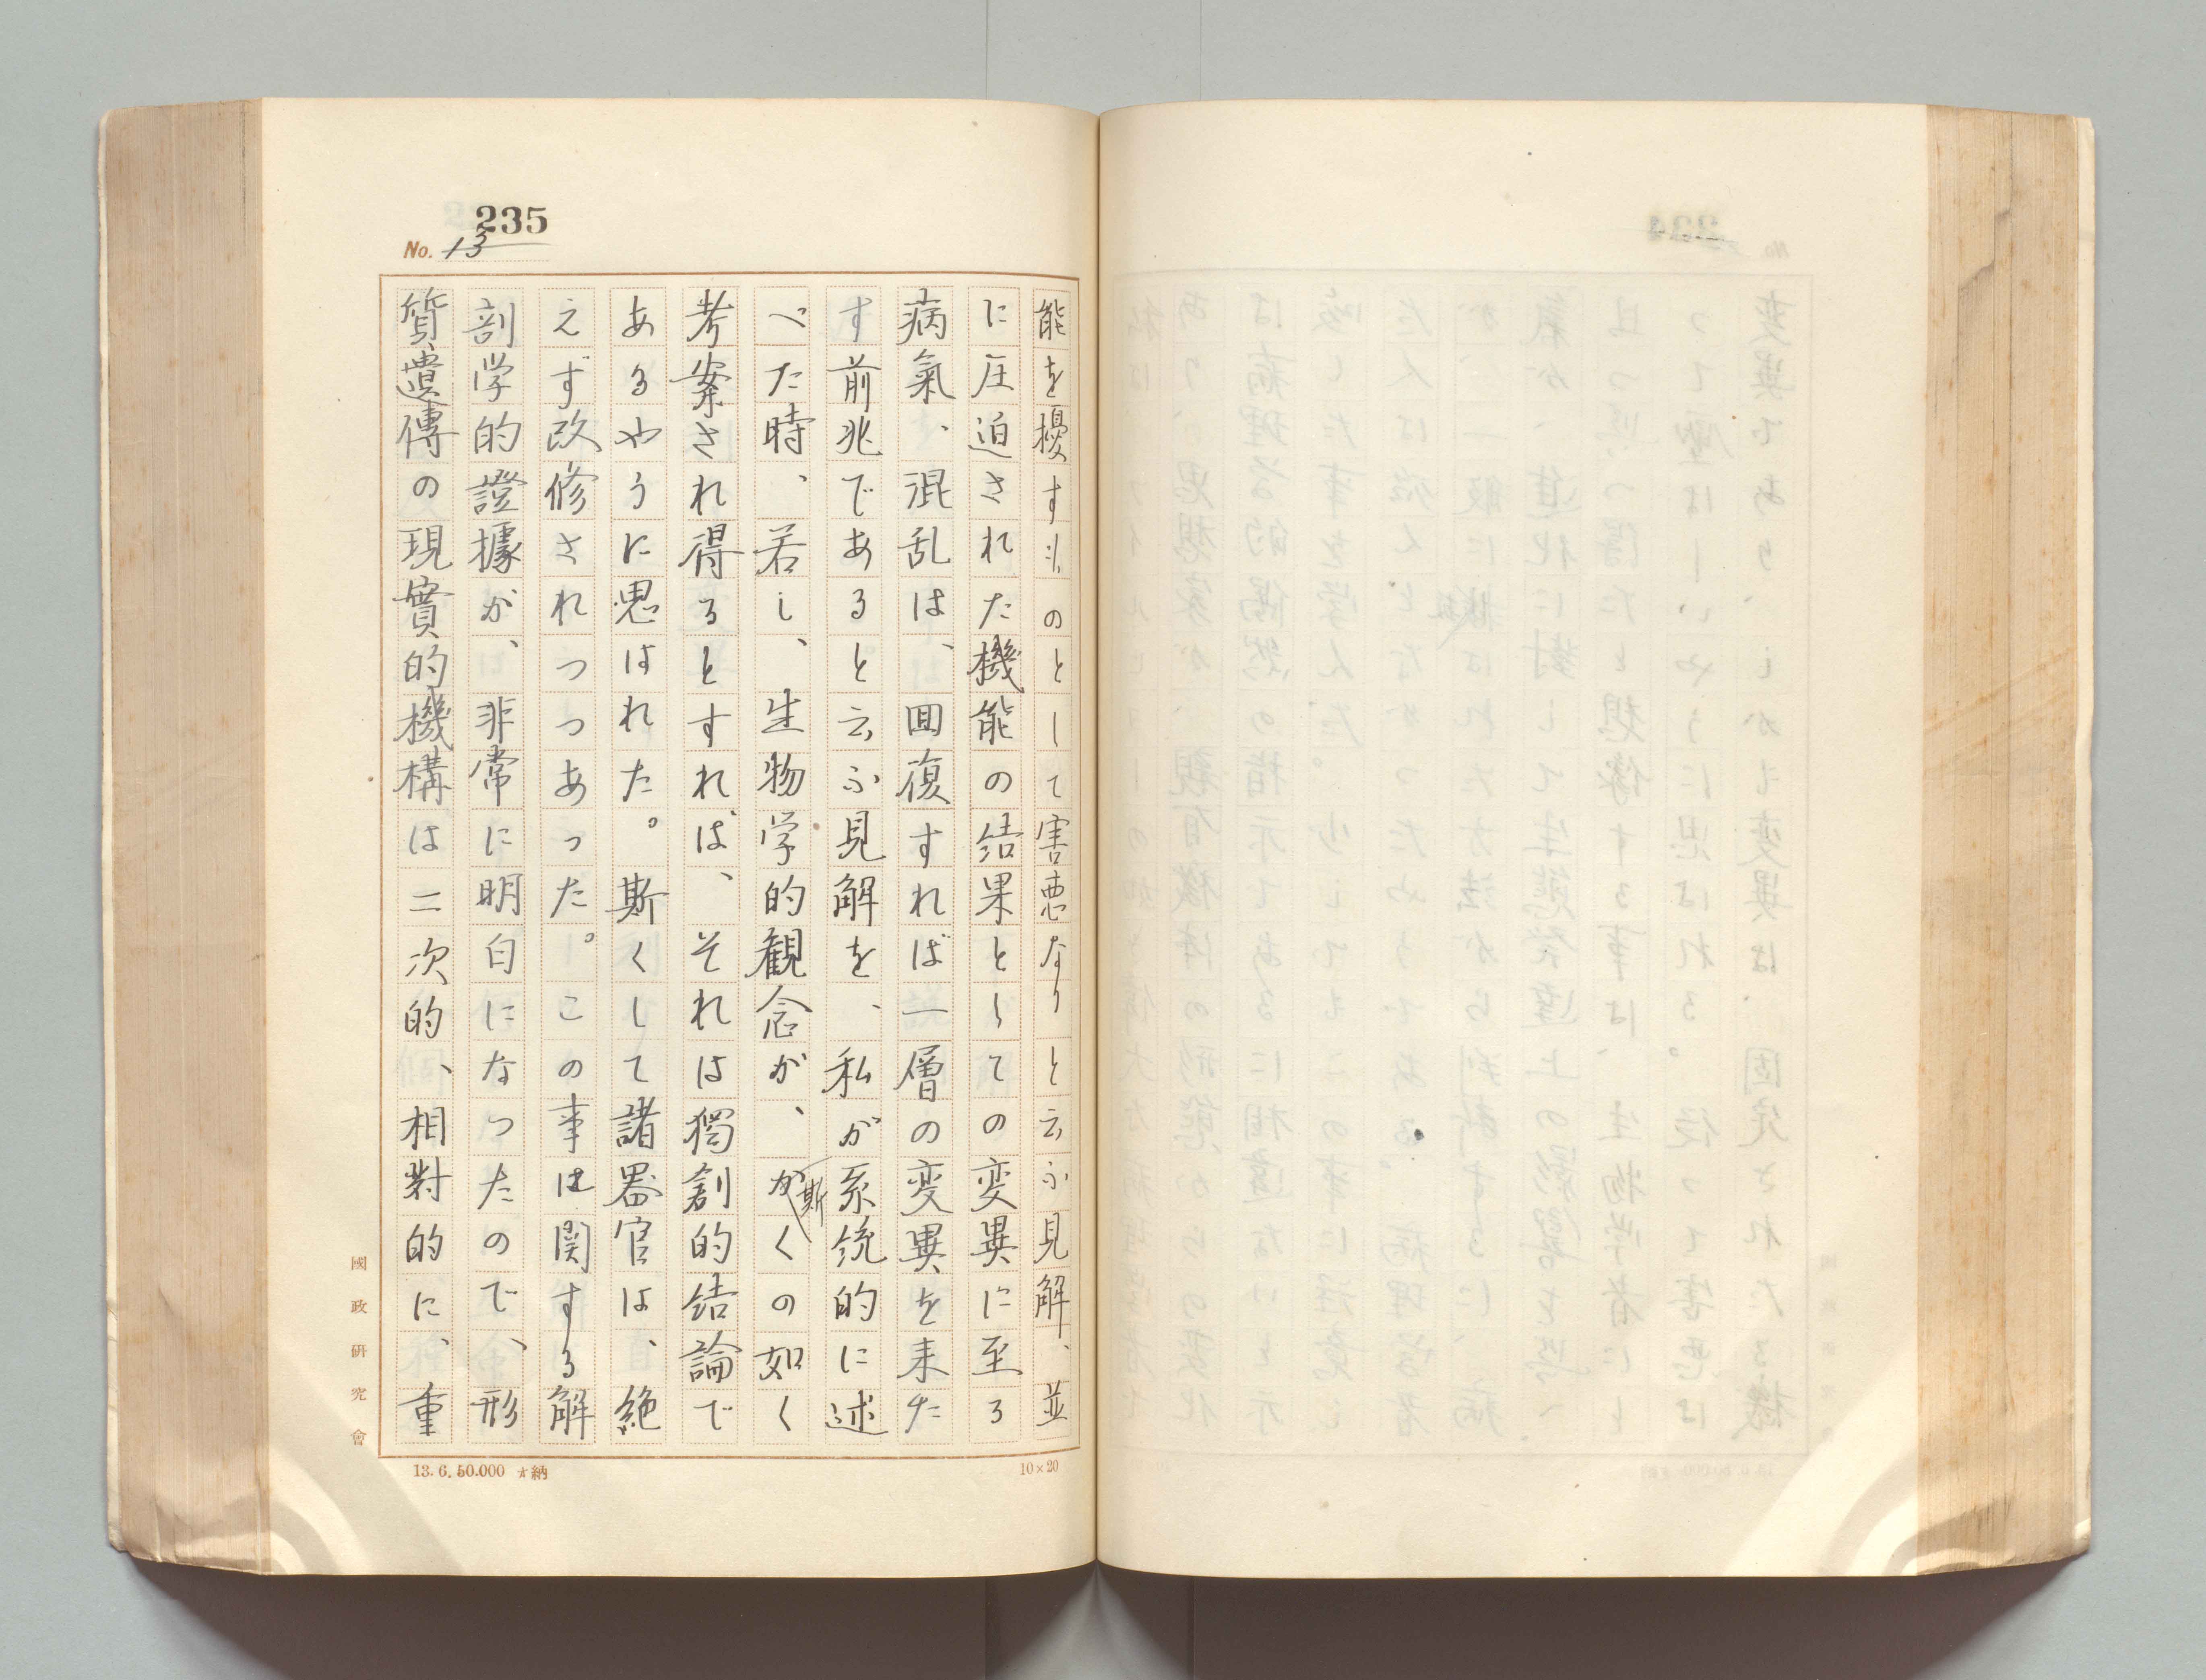 235
No. 13
能を擾すものとして害悪なりと云ふ見解、並
に圧迫された機能の結果としての変異に至る
病氣、混乱は、囬復すれば一層の変異を来た
す前兆であると云ふ見解を、私が系統的に述
べた時、若し、生物学的観念が、斯くの如く
考案され得るとすれば、それは獨創的結論で
あるやうに思はれた。斯くして諸器官は、絶
えず改修されつつあった。この事は関する解
剖学的證據が、非常に明白になったので、形
質遺傳の現實的機構は二次的、相對的に、重
國政研究會
13.6.50.000 オ納
10×20